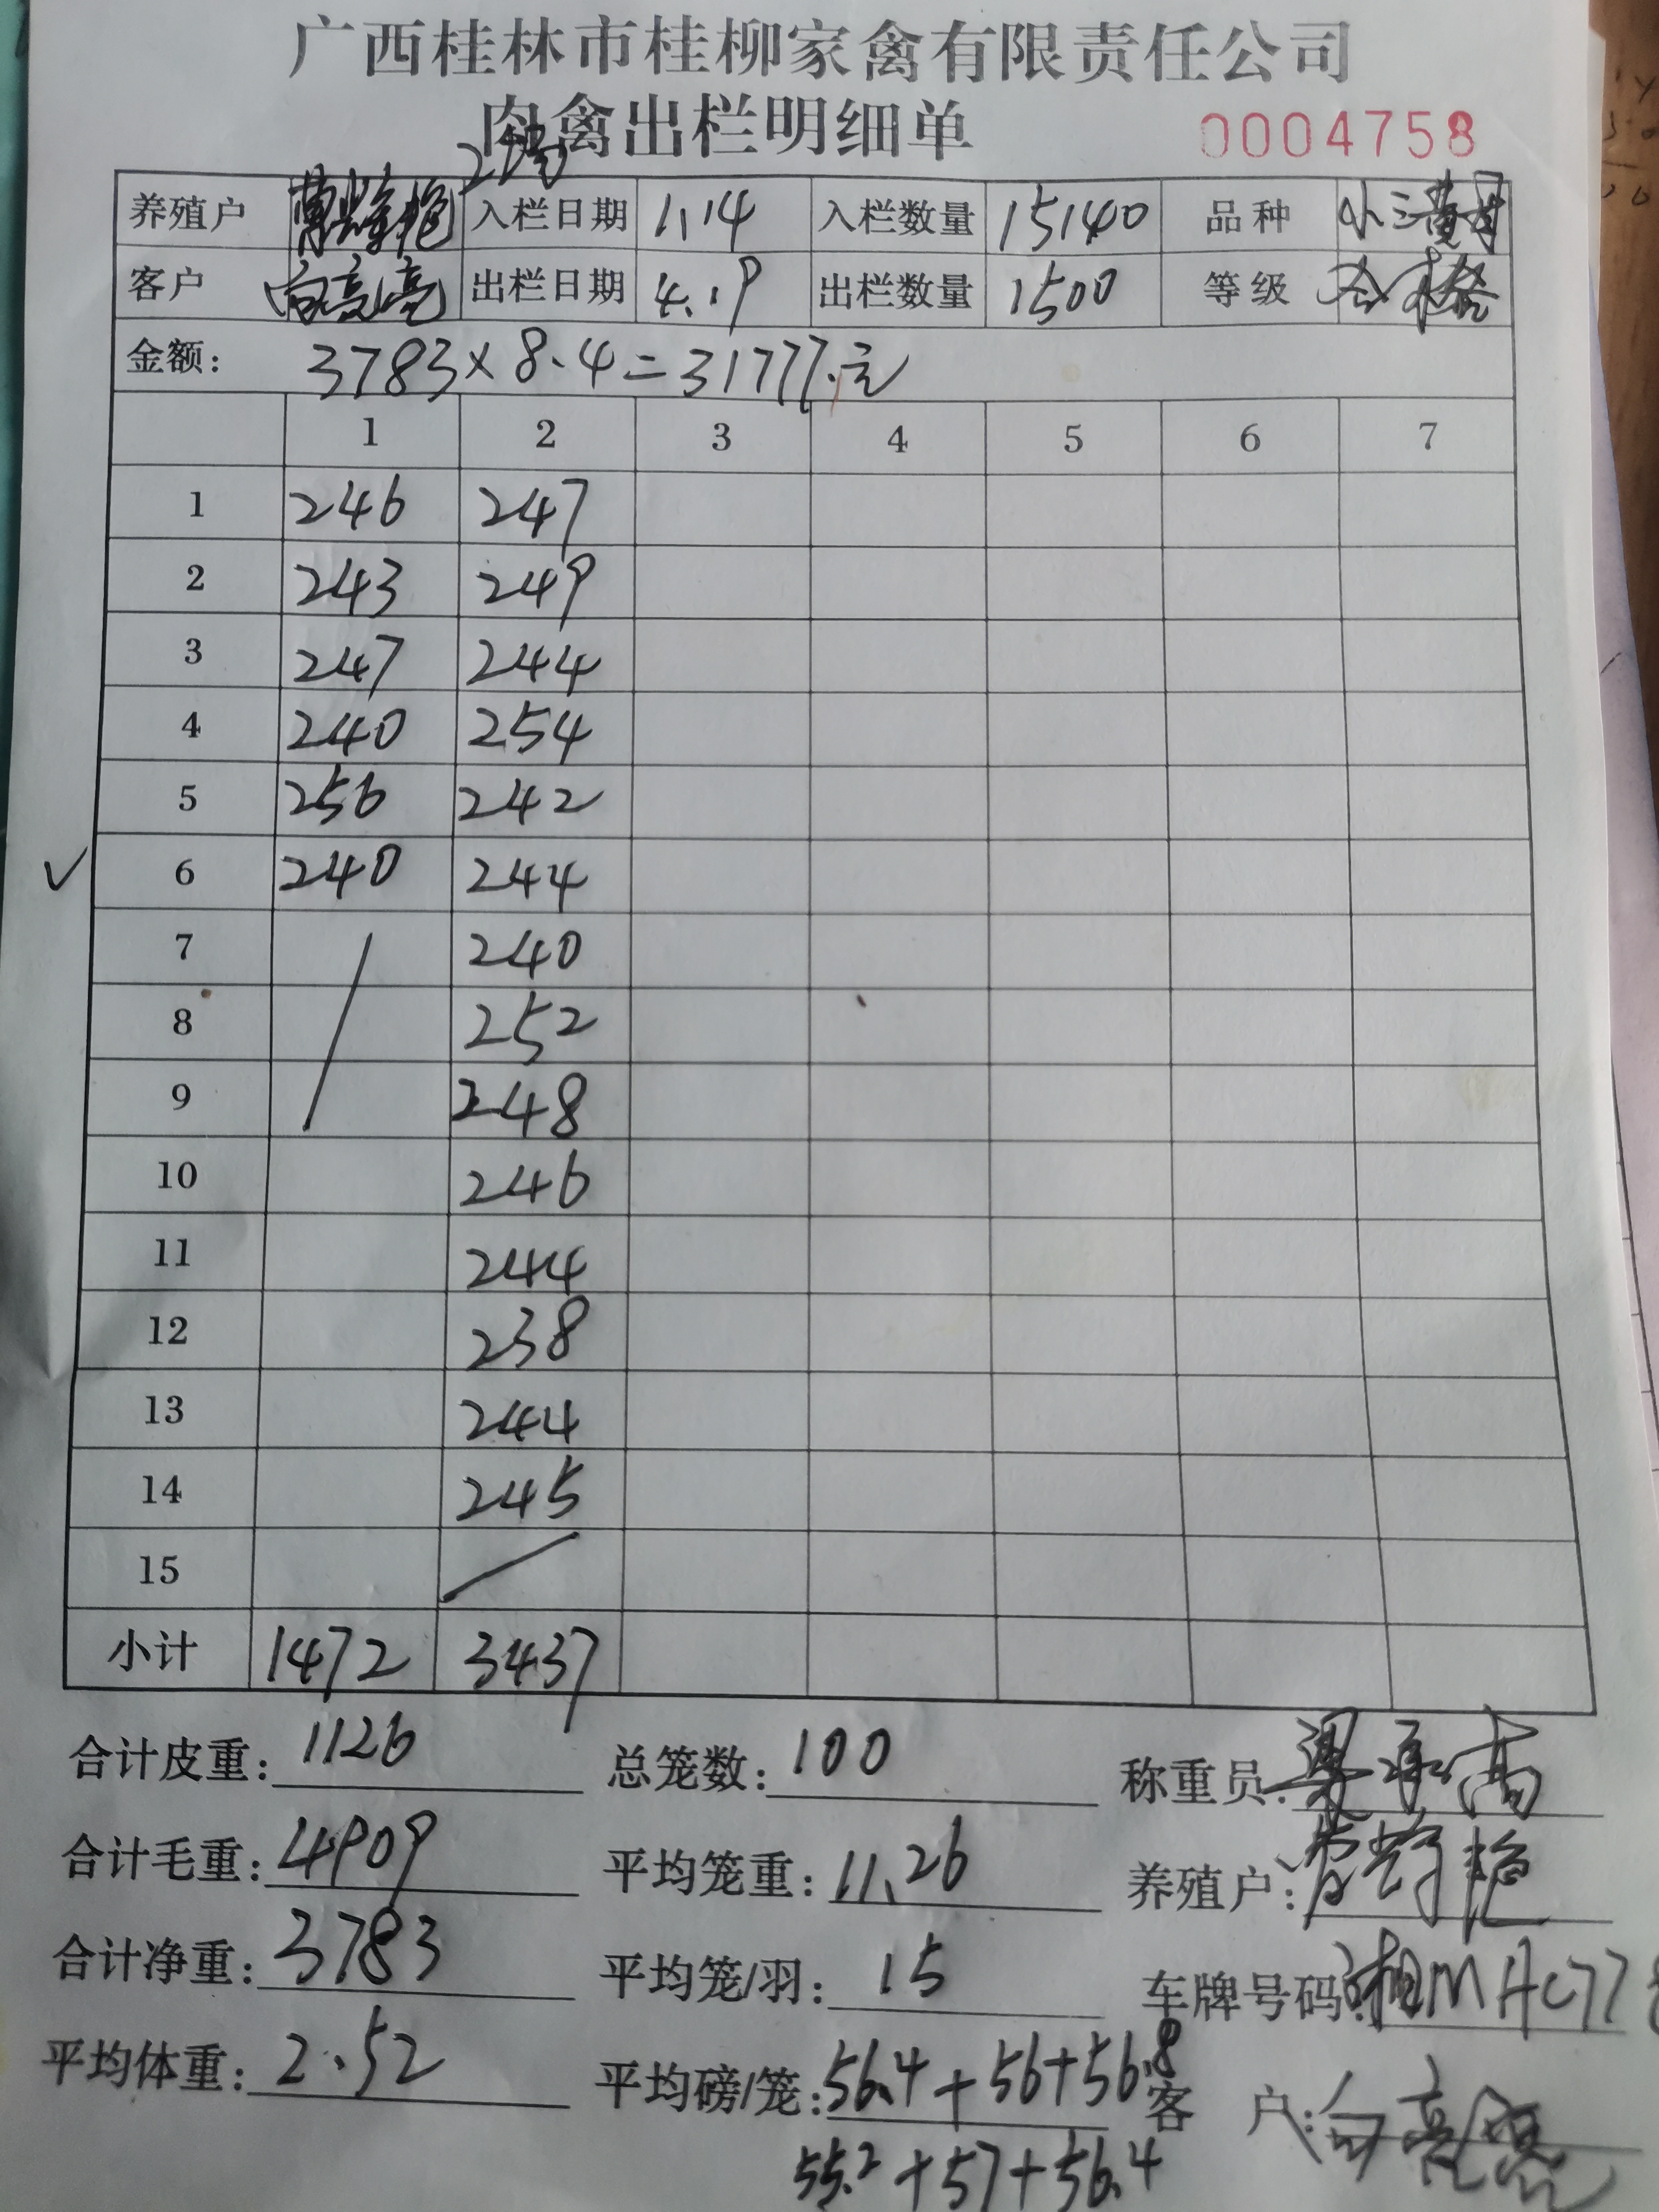 广西桂林市桂柳家禽有限责任公司
肉禽出栏明细单 0004758
养殖户 入栏日期 1.14 入栏数量 15140 品种 小三黄母
客户 向高亮 出栏日期 4.19 出栏数量 1500 等级 合格
金额: 3783×8.4=31777.元
1 2 3 4 5 6 7
1 246 247
2 243 249
3 247 244
4 240 254
5 256 242
6 240 244
7 240
8 252
9 248
10 246
11 244
12 238
13 244
14 245
15
小计 1472 3437
合计皮重: 1126 总笼数: 100 称重员:
合计毛重: 4909 平均笼重: 11.26 养殖户:
合计净重: 3783 平均笼/羽: 15 车牌号码: 湘MHC77
平均体重: 2.52 平均磅/笼: 56.4+56+56.8 客 户:
55.2+57+56.4